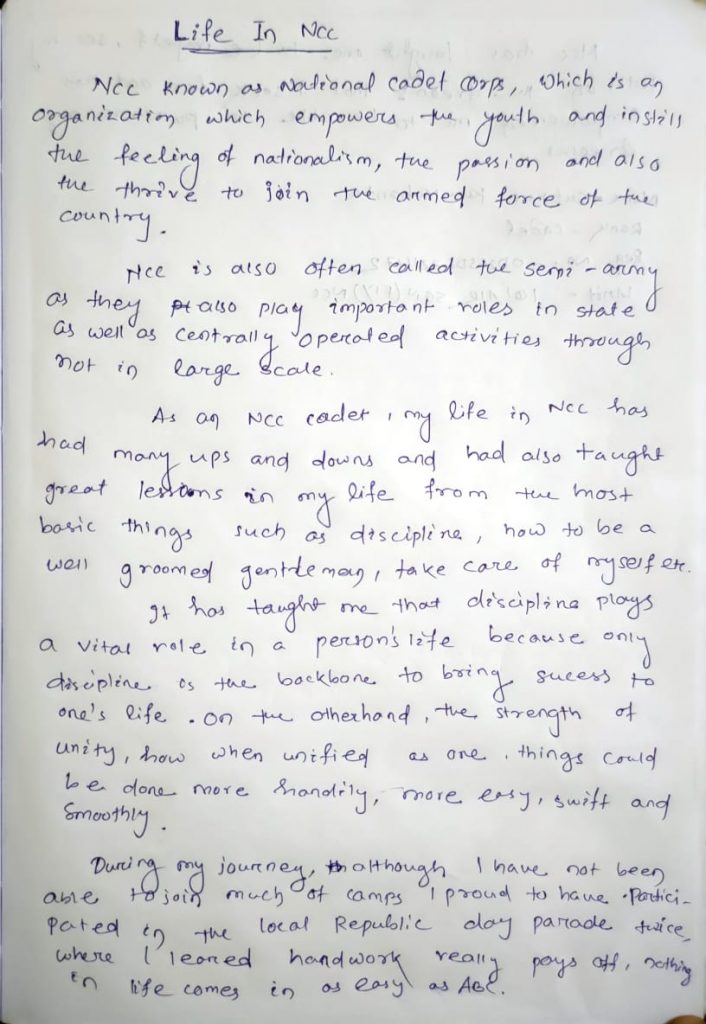 Life In Ncc
Ncc known as National cadet corps, which is an
organization which empowers the youth and instill
the feeling of nationalism, the passion and also
the thrive to join the armed force of the
country.
Ncc is also often called the semi-army
as they also play important roles in state
as well as centrally operated activities through
not in large scale.
As an Ncc cadet, my life in Ncc has
had many ups and downs and had also taught
great lessons in my life from the most
basic things such as discipline, how to be a
well groomed gentleman, take care of myself etc.
It has taught me that discipline plays
a vital role in a person's life because only
discipline is the backbone to bring sucess to
one's life. On the otherhand, the strength of
unity, how when unified as one, things could
be done more handily, more easy, swift and
smoothly.
During my journey, although I have not been
able to join much of camps I proud to have partici-
pated in the local Republic day parade twice,
where I leared hardwork really pays off, nothing
in life comes in as easy as ABC.